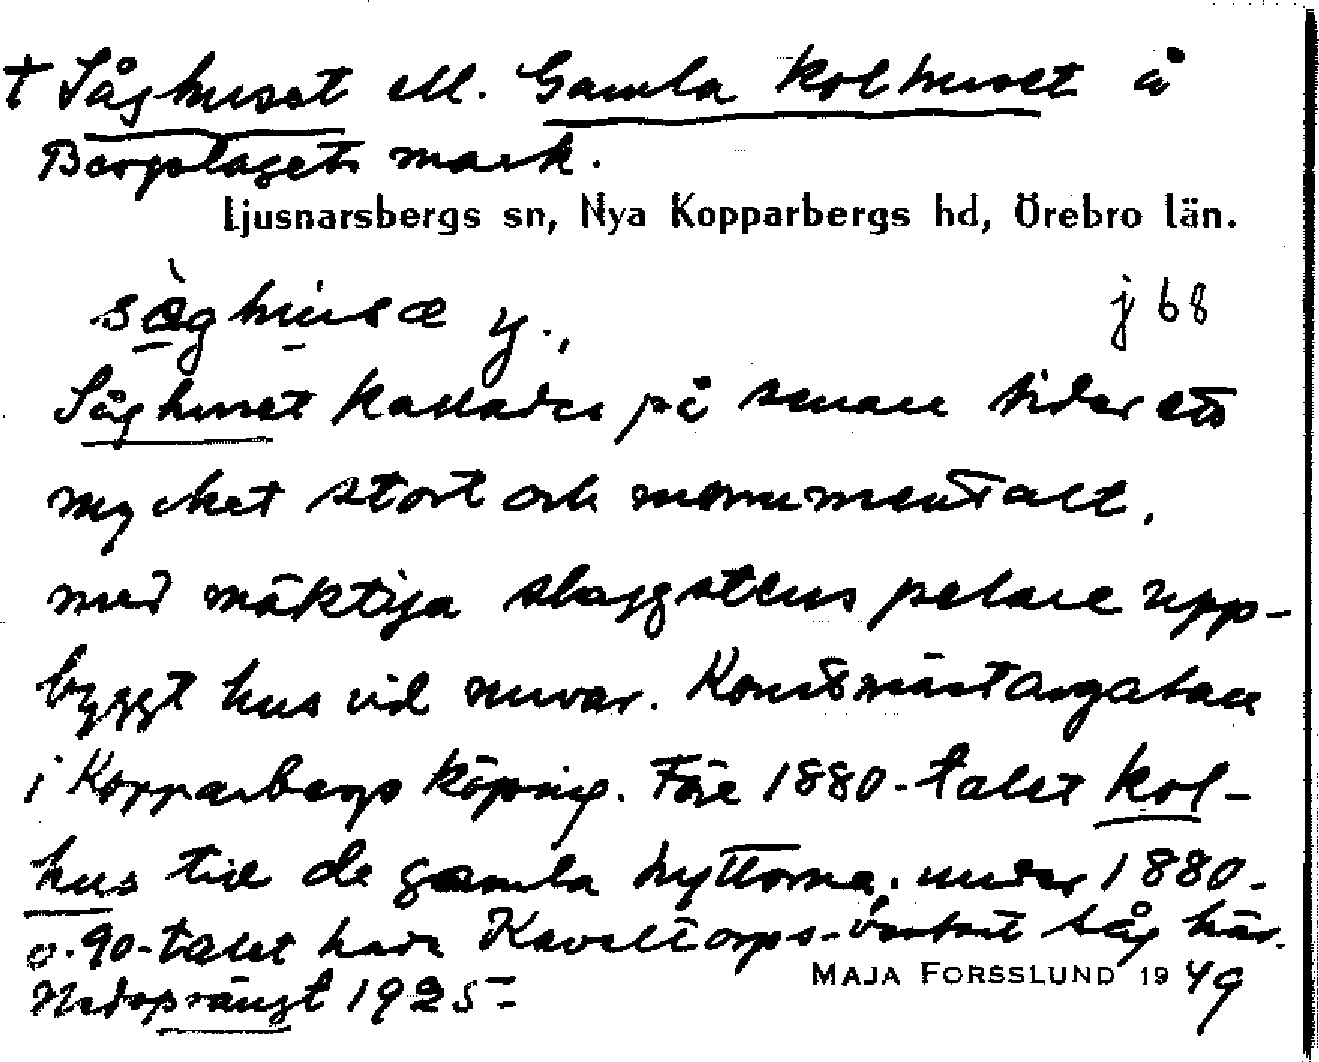 † Såghuset ell. Gamla kolhuset å
Bergslagets mark.
Ljusnarsbergs sn, Nya Kopparbergs hd, Örebro län.
j 68
Såghuset kallades på senare tider ett
mycket stort och monumentalt,
med mäktiga slaggstens pelare upp-
byggt hus vid nuvar. Konstmästaregatan
i Kopparbergs köping. Före 1880-talet kol-
hus till de gamla hyttorna, under 1880-
o. 90-talet hade Kaveltorps-verket såg här.
Nedsprängt 1925.
MAJA FORSSLUND 1949